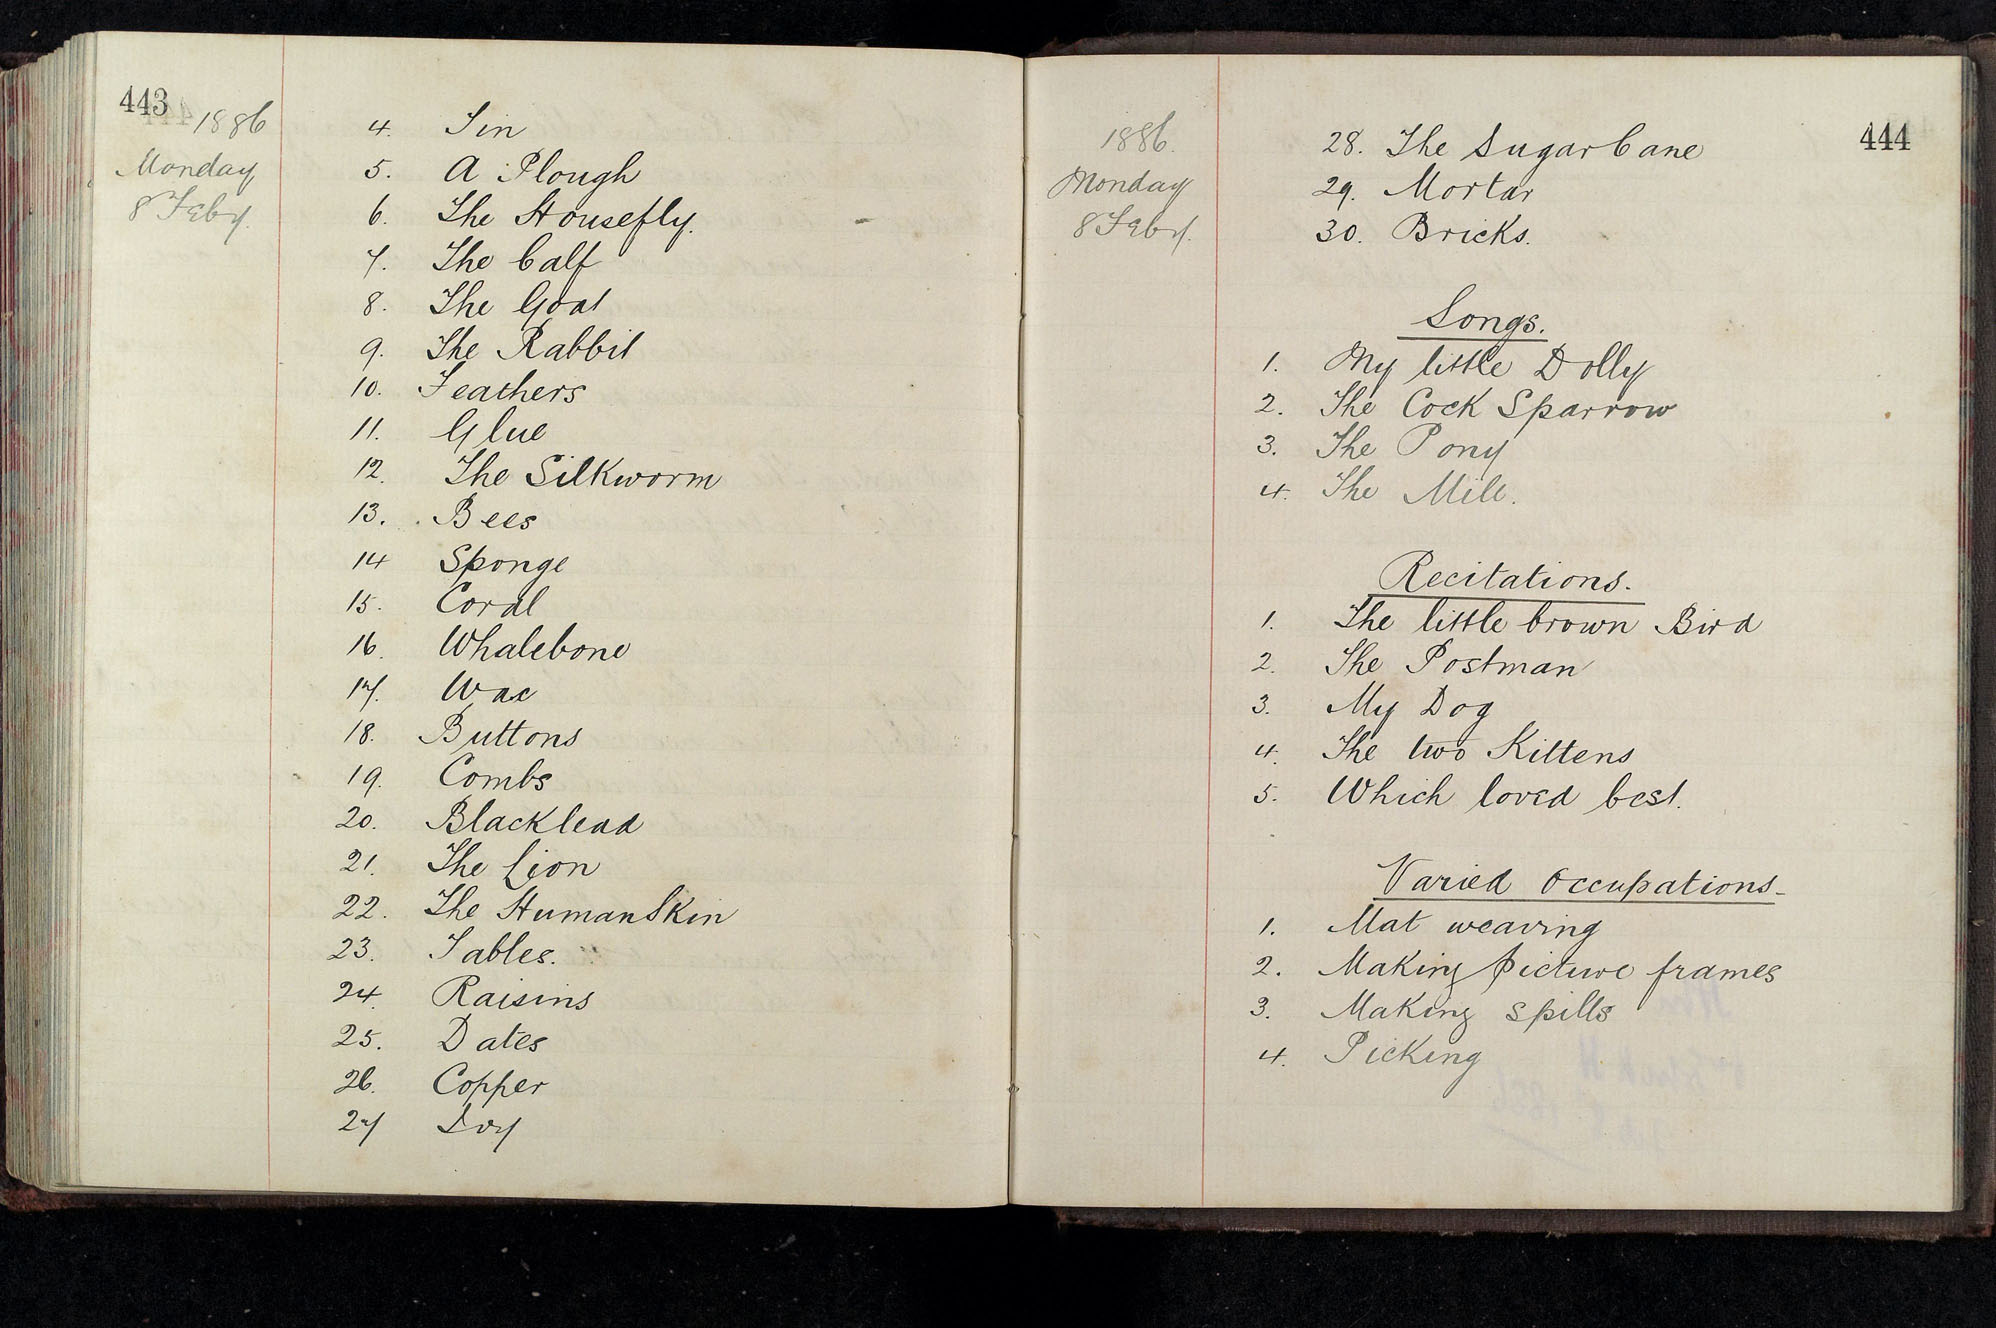 443
1886
Monday
8 Feby.
4. Tin
5. A Plough
6. The Housefly.
7. The Calf
8. The Goat
9. The Rabbit
10. Feathers
11. Glue
12. The Silkworm
13. Bees
14 Sponge
15. Coral
16. Whalebone
17. Wax
18. Buttons
19. Combs
20. Blacklead
21. The Lion
22. The Human Skin
23. Tables.
24. Raisins
25. Dates
26. Copper
27 Ivy
444
1886.
Monday
8 Feby.
28. The Sugar Cane
29. Mortar
30. Bricks.
Songs.
1. My little Dolly
2. The Cock Sparrow
3. The Pony
4. The Mill.
Recitations.
1. The little brown Bird
2. The Postman
3. My Dog
4. The two Kittens
5. Which loved best.
Varied Occupations
1. Mat weaving
2. Making picture frames
3. Making spills
4. Picking